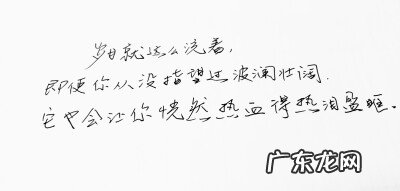 岁月就这么流着,
即便你从没指望过波澜壮阔.
它也会让你恍然热血得热泪盈眶。
广东龙网